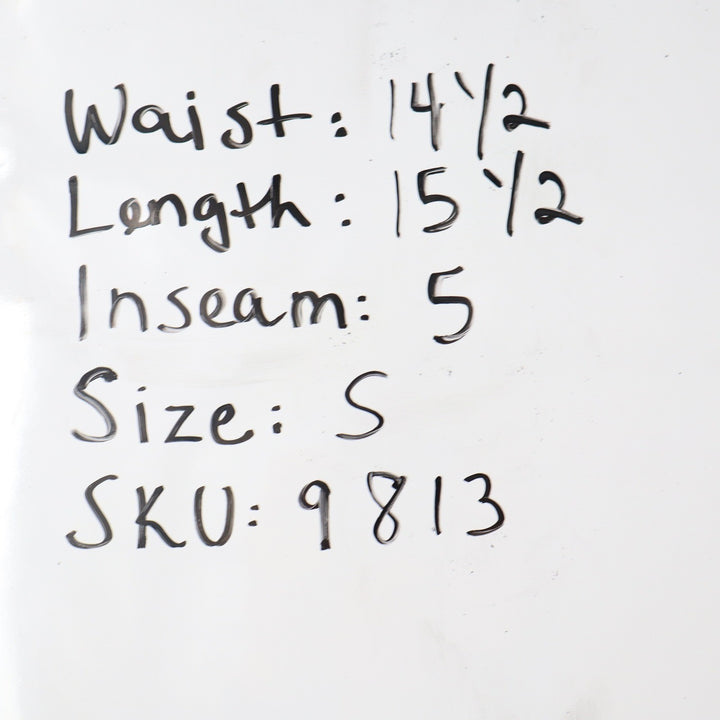 Waist: 14 1/2
Length: 15 1/2
Inseam: 5
Size: S
SKU: 9813